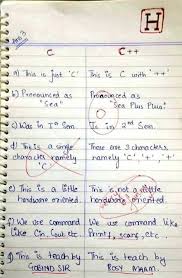 H
Ans 3
C C++
a) This is just 'C' This is C with '++'
b) Pronounced as Pronounced as
"Sea" "Sea Plus Plus"
c) Was in 1st Sem Is in 2nd Sem.
d) This is a single These are 3 characters
character namely namely
'C' "C", '+', '+'
e) This is a little This is not a little
hardware oriented. hardware oriented.
f) We use command We use command like
like Cin, Cout etc. Printf, scanf, etc
g) This is teach by This is teach by
GOBIND SIR ROSY MAAM.